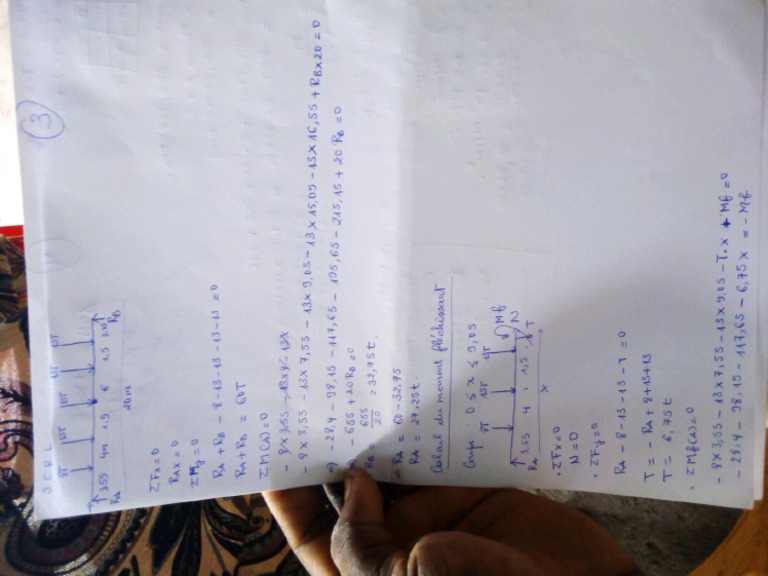 3
S.C.R.L
8T 13T 13T 13T 13T
3,55 4m 1,5 6 1,5 3,45
RA 20m RB
ΣFx=0
RAx=0
ΣMy=0
RA+RB-8-13-13-13-13=0
RA+RB = 60T
ΣM(A)=0
-8x3,55-13x7,55-13x9,05-13x15,05-13x16,55+RBx20=0
⇒ -28,4-98,15-117,65-195,65-215,15+20RB=0
⇒ -655+20RB=0
RB = 655/20 = 32,75t.
- RA = 60-32,75
RA = 27,25t.
Calcul du moment fléchissant
Coupe 0≤x≤9,05
8T 13T 13T Mf
3,55 4 1,5 N
RA T
x
· ΣFx=0
N=0
· ΣFy=0
RA-8-13-13-T=0
T=-RA+8+13+13
T= 6,75t
· ΣMf(A)=0
-8x3,55-13x7,55-13x9,05-T·x+Mf=0
-28,4-98,15-117,65-6,75x=-Mf